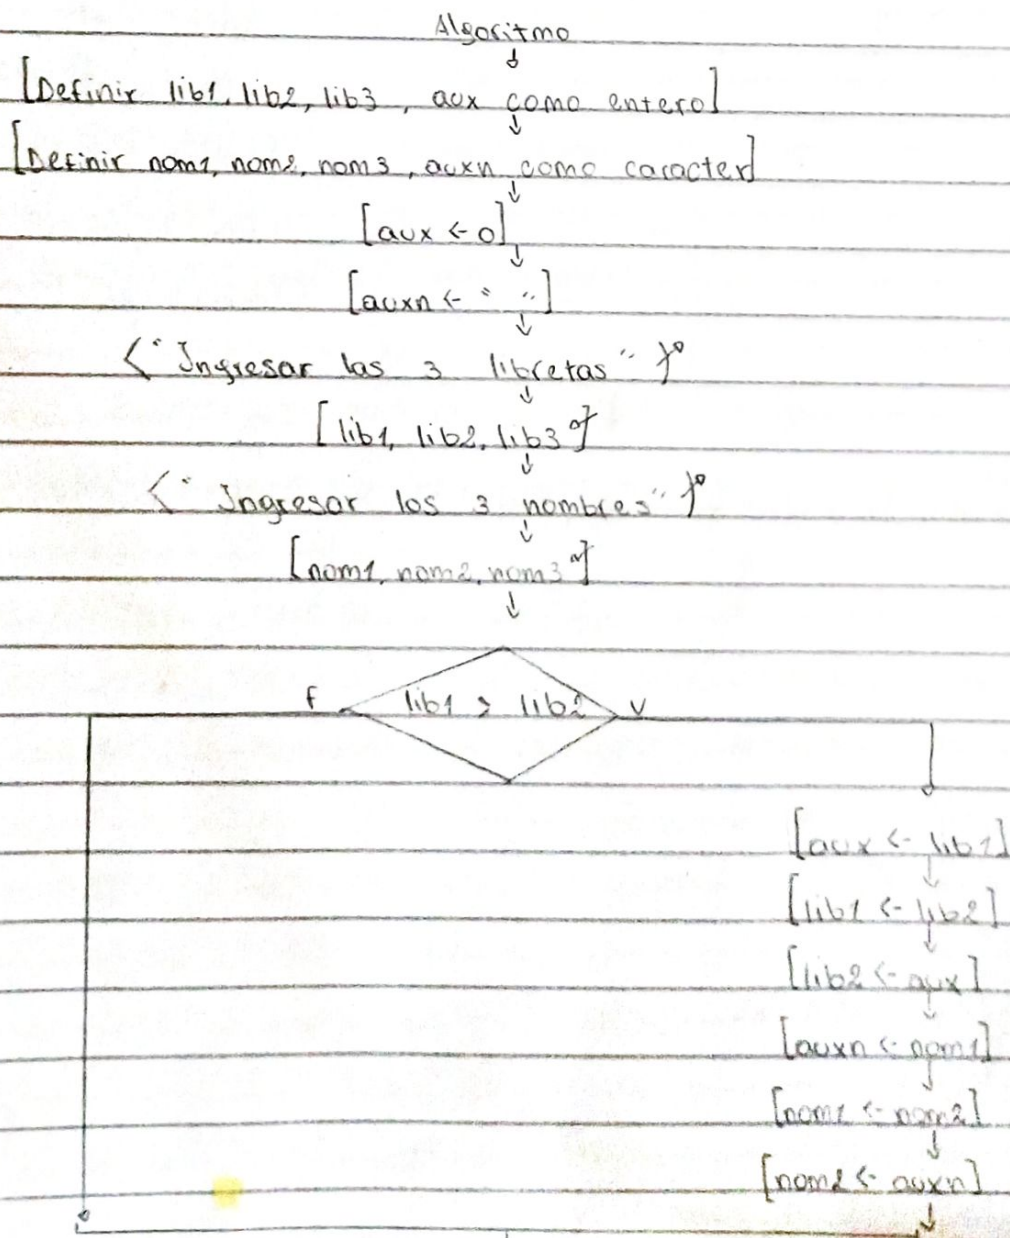 Algoritmo
[Definir lib1, lib2, lib3, aux como entero]
[Definir nom1, nom2, nom3, auxn como caracter]
[aux ← 0]
[auxn ← " "]
"Ingresar las 3 libretas"
[lib1, lib2, lib3]
"Ingresar los 3 nombres"
[nom1, nom2, nom3]
f lib1 > lib2 v
[aux ← lib1]
[lib1 ← lib2]
[lib2 ← aux]
[auxn ← nom1]
[nom1 ← nom2]
[nom2 ← auxn]